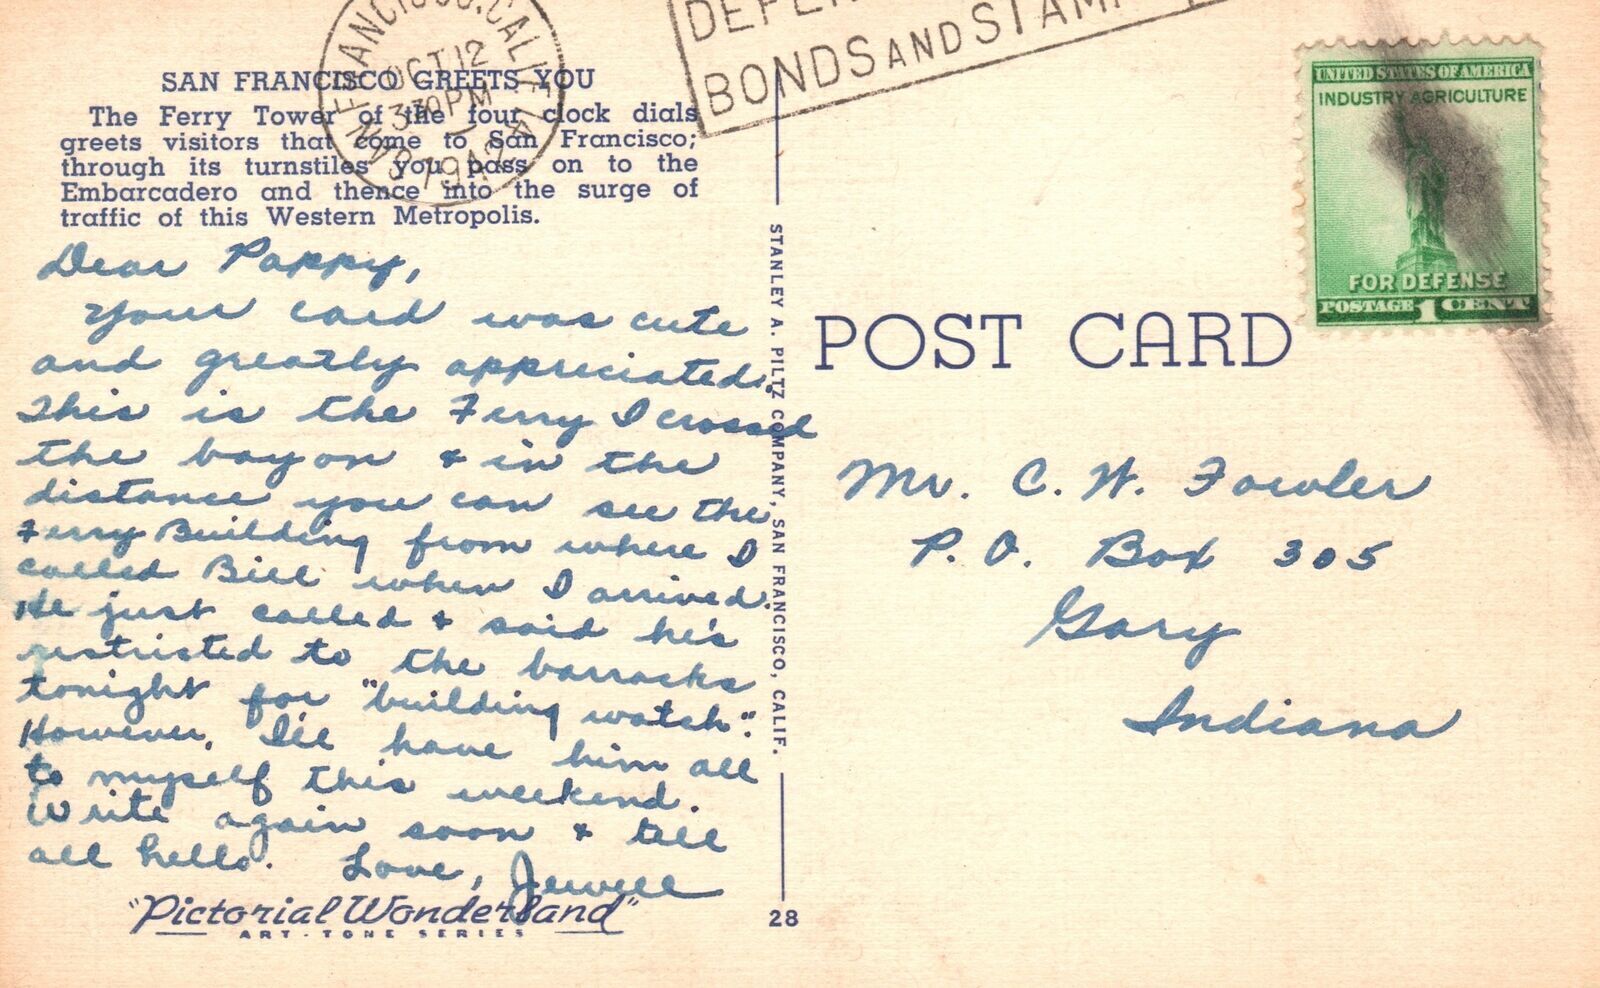 SAN FRANCISCO, CALIF.
OCT 12
3 30 PM
1942
BONDS AND STAMP
SAN FRANCISCO GREETS YOU
The Ferry Tower of the four clock dials
greets visitors that come to San Francisco;
through its turnstiles you pass on to the
Embarcadero and thence into the surge of
traffic of this Western Metropolis.
Dear Pappy,
Your card was cute
and greatly appreciated.
This is the Ferry I crossed
the bay on & in the
distance you can see the
Ferry Building from where I
called Bill when I arrived.
He just called & said he's
restricted to the barracks
tonight for "building watch".
However, I'll have him all
to myself this weekend.
Write again soon & tell
all hello. Love, Jewell
"Pictorial Wonderland"
ART-TONE SERIES
STANLEY A. PILTZ COMPANY, SAN FRANCISCO, CALIF.
28
UNITED STATES OF AMERICA
INDUSTRY AGRICULTURE
FOR DEFENSE
POSTAGE 1 CENT
POST CARD
Mr. C. W. Fowler
P. O. Box 305
Gary
Indiana